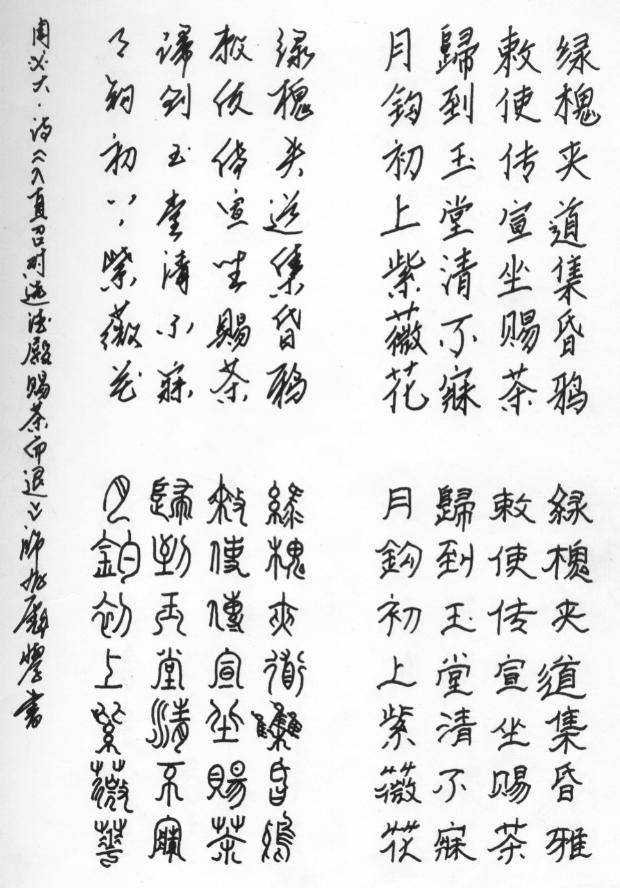 绿槐夹道集昏鸦
敕使传宣坐赐茶
歸到玉堂清不寐
月鈎初上紫薇花
绿槐夹道集昏鸦
敕使传宣坐赐茶
歸到玉堂清不寐
月鈎初上紫薇花
緑槐夹道集昏雅
敕使传宣坐赐茶
歸到玉堂清不寐
月鈎初上紫薇花
綠槐夾道集昏鴉
敕使傳宣坐賜茶
歸到玉堂清不寐
月鉤初上紫薇華
周必大·诗《入直召对选德殿赐茶而退》书